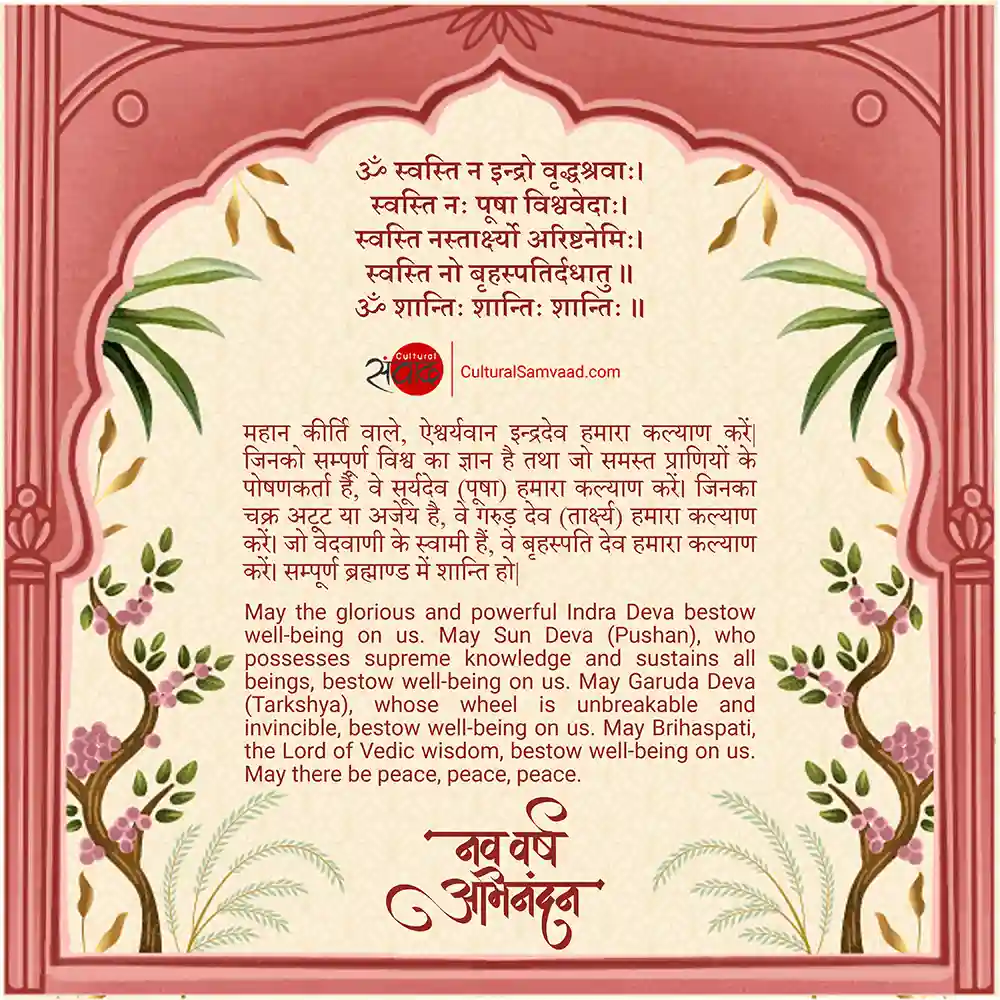 ॐ स्वस्ति न इन्द्रो वृद्धश्रवाः।
स्वस्ति नः पूषा विश्ववेदाः।
स्वस्ति नस्तार्क्ष्यो अरिष्टनेमिः।
स्वस्ति नो बृहस्पतिर्दधातु ॥
ॐ शान्तिः शान्तिः शान्तिः ॥
Cultural
संवाद
CulturalSamvaad.com
महान कीर्ति वाले, ऐश्वर्यवान इन्द्रदेव हमारा कल्याण करें|
जिनको सम्पूर्ण विश्व का ज्ञान है तथा जो समस्त प्राणियों के
पोषणकर्ता हैं, वे सूर्यदेव (पूषा) हमारा कल्याण करें। जिनका
चक्र अटूट या अजेय है, वे गरुड़ देव (तार्क्ष्य) हमारा कल्याण
करें। जो वेदवाणी के स्वामी हैं, वे बृहस्पति देव हमारा कल्याण
करें। सम्पूर्ण ब्रह्माण्ड में शान्ति हो|
May the glorious and powerful Indra Deva bestow
well-being on us. May Sun Deva (Pushan), who
possesses supreme knowledge and sustains all
beings, bestow well-being on us. May Garuda Deva
(Tarkshya), whose wheel is unbreakable and
invincible, bestow well-being on us. May Brihaspati,
the Lord of Vedic wisdom, bestow well-being on us.
May there be peace, peace, peace.
नव वर्ष
अभिनंदन